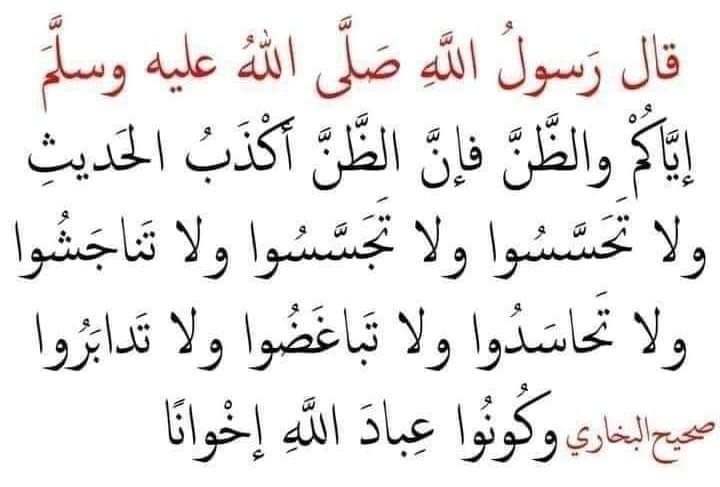 قال رَسولُ اللَّهِ صَلَّى اللهُ عليه وسلَّمَ
إيَّاكُمْ والظَّنَّ فإنَّ الظَّنَّ أَكْذَبُ الحَديثِ
ولا تَحَسَّسُوا ولا تَجَسَّسُوا ولا تَناجَشُوا
ولا تَحاسَدُوا ولا تَباغَضُوا ولا تَدابَرُوا
وكُونُوا عِبادَ اللَّهِ إخْوانًا
صحيح البخاري